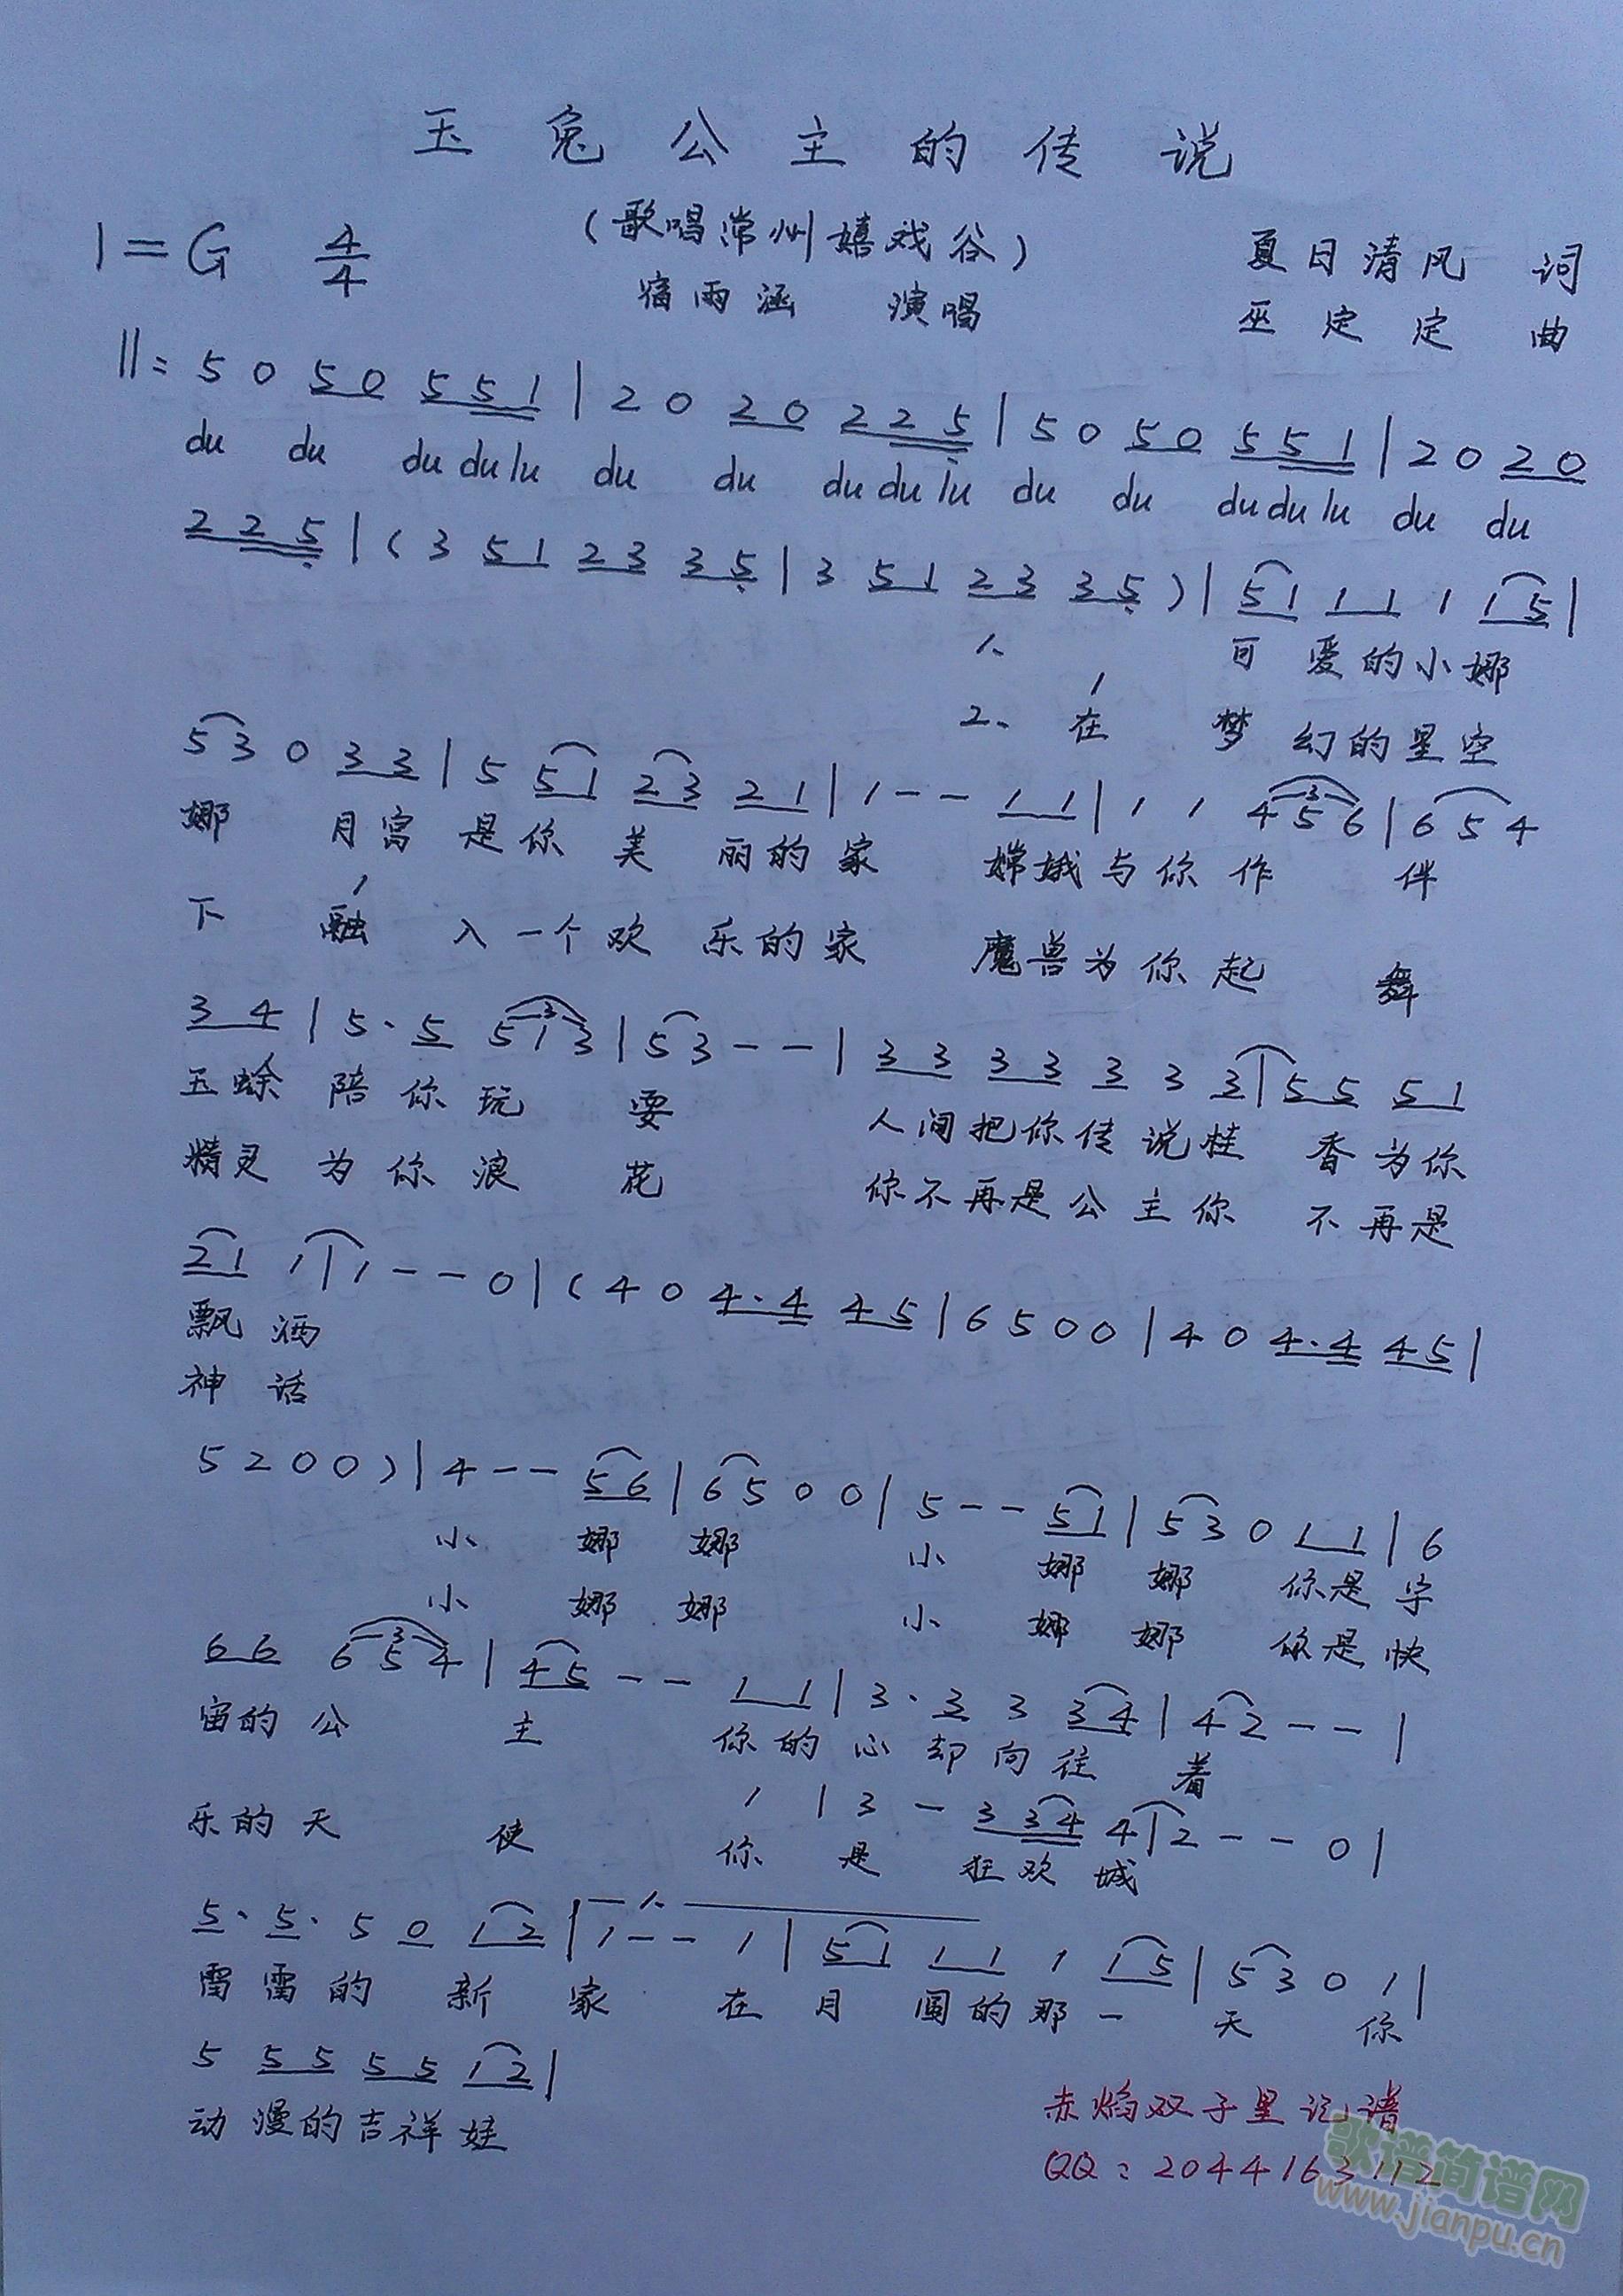 玉兔公主的传说
(歌唱常州嬉戏谷)
1=G 4/4
夏日清风 词
宿雨涵 演唱
巫定定 曲
||: 5 0 5 0 5 5 1 | 2 0 2 0 2 2 5 | 5 0 5 0 5 5 1 | 2 0 2 0
du du du du lu du du du du lu du du du du lu du du
2 2 5 | ( 3 5 1 2 3 3 5 | 3 5 1 2 3 3 5 ) | 5 1 1 1 1 1 5 |
1、 可爱的小娜
1
2、在梦幻的星空
5 3 0 3 3 | 5 5 1 2 3 2 1 | 1 - - 1 1 | 1 1 4 5 6 | 6 5 4
娜 月宫是你美丽的家 嫦娥与你作伴
1
下 融入一个欢乐的家 魔兽为你起舞
3 4 | 5 · 5 5 1 3 | 5 3 - - | 3 3 3 3 3 3 3 | 5 5 5 1
玉蜍陪你玩耍 人间把你传说桂香为你
精灵为你浪花 你不再是公主你不再是
2 1 1 | 1 - - 0 | ( 4 0 4 · 4 4 5 | 6 5 0 0 | 4 0 4 · 4 4 5 |
飘洒
神话
5 2 0 0 ) | 4 - - 5 6 | 6 5 0 0 | 5 - - 5 1 | 5 3 0 1 1 | 6
小娜娜 小娜娜 你是宇
小娜娜 小娜娜 你是快
6 6 6 5 4 | 4 5 - - 1 1 | 3 · 3 3 3 4 | 4 2 - - |
宙的公主 你的心却向往着
1 | 3 - 3 3 4 4 | 2 - - 0 |
乐的天使 你是狂欢城
5 · 5 · 5 0 1 2 | 1 - - 1 | 5 1 1 1 1 1 5 | 5 3 0 1 |
1、
雷雷的新家 在月圆的那一天 你
5 5 5 5 5 1 2 |
动漫的吉祥娃
赤焰双子星记谱
QQ:2044163112
歌谱简谱网
www.jianpu.cn